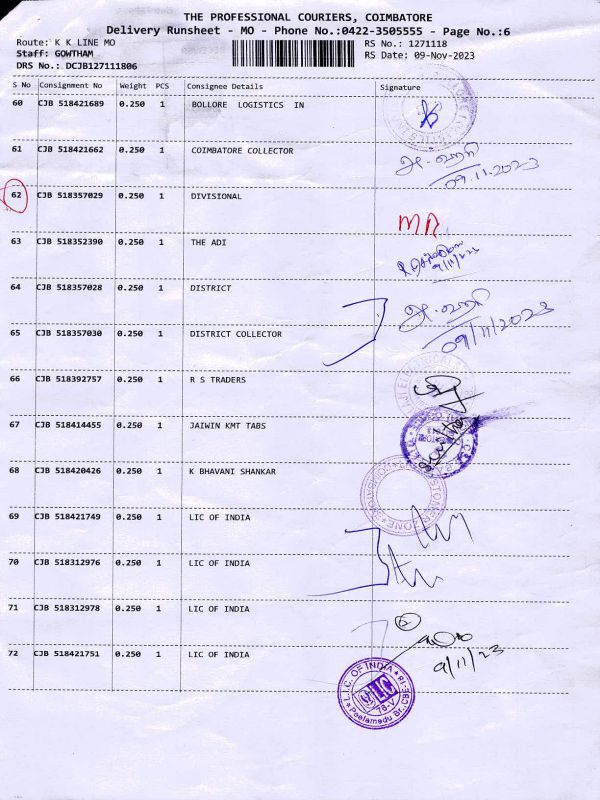 THE PROFESSIONAL COURIERS, COIMBATORE
Delivery Runsheet - MO - Phone No.:0422-3505555 - Page No.:6
Route: K K LINE MO RS No.: 1271118
Staff: GOWTHAM RS Date: 09-Nov-2023
DRS No.: DCJB127111806
S No Consignment No Weight PCS Consignee Details Signature
60 CJB 518421689 0.250 1 BOLLORE LOGISTICS IN
61 CJB 518421662 0.250 1 COIMBATORE COLLECTOR
09.11.2023
62 CJB 518357029 0.250 1 DIVISIONAL
MR
63 CJB 518352390 0.250 1 THE ADI
9/11/23
64 CJB 518357028 0.250 1 DISTRICT
65 CJB 518357030 0.250 1 DISTRICT COLLECTOR
09/11/2023
66 CJB 518392757 0.250 1 R S TRADERS
67 CJB 518414455 0.250 1 JAIWIN KMT TABS
68 CJB 518420426 0.250 1 K BHAVANI SHANKAR
69 CJB 518421749 0.250 1 LIC OF INDIA
70 CJB 518312976 0.250 1 LIC OF INDIA
71 CJB 518312978 0.250 1 LIC OF INDIA
72 CJB 518421751 0.250 1 LIC OF INDIA
9/11/23
L.I.C. OF INDIA
LIC
78-V
Peelamedu Br., CBE-18